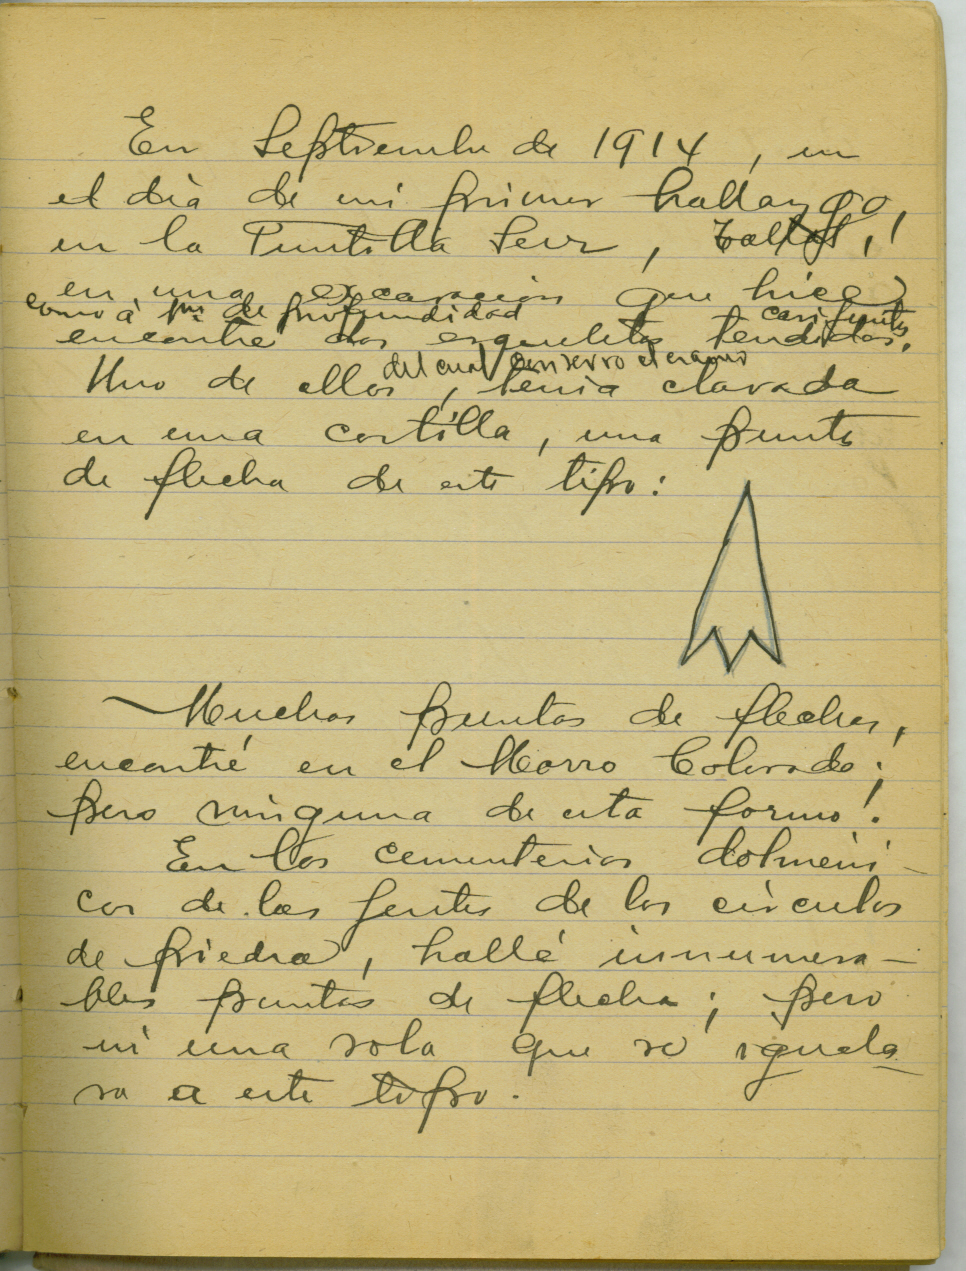 En Septiembre de 1914, en
el día de mi primer hallazgo,
en la Puntilla Sur, Taltal,
en una excavación que hice
como á 1m de profundidad casi juntos
encontré dos esqueletos tendidos.
del cual conservo el craneo
Uno de ellos, tenia clavada
en una costilla, una punta
de flecha de este tipo:
Muchas puntas de flechas,
encontré en el Morro Colorado;
pero ninguna de esta forma!
En los cementerios dolmeni-
cos de las gentes de los circulos
de piedra, hallé innumera-
bles puntas de flecha; pero
ni una sola que se iguala-
ra a este tipo.